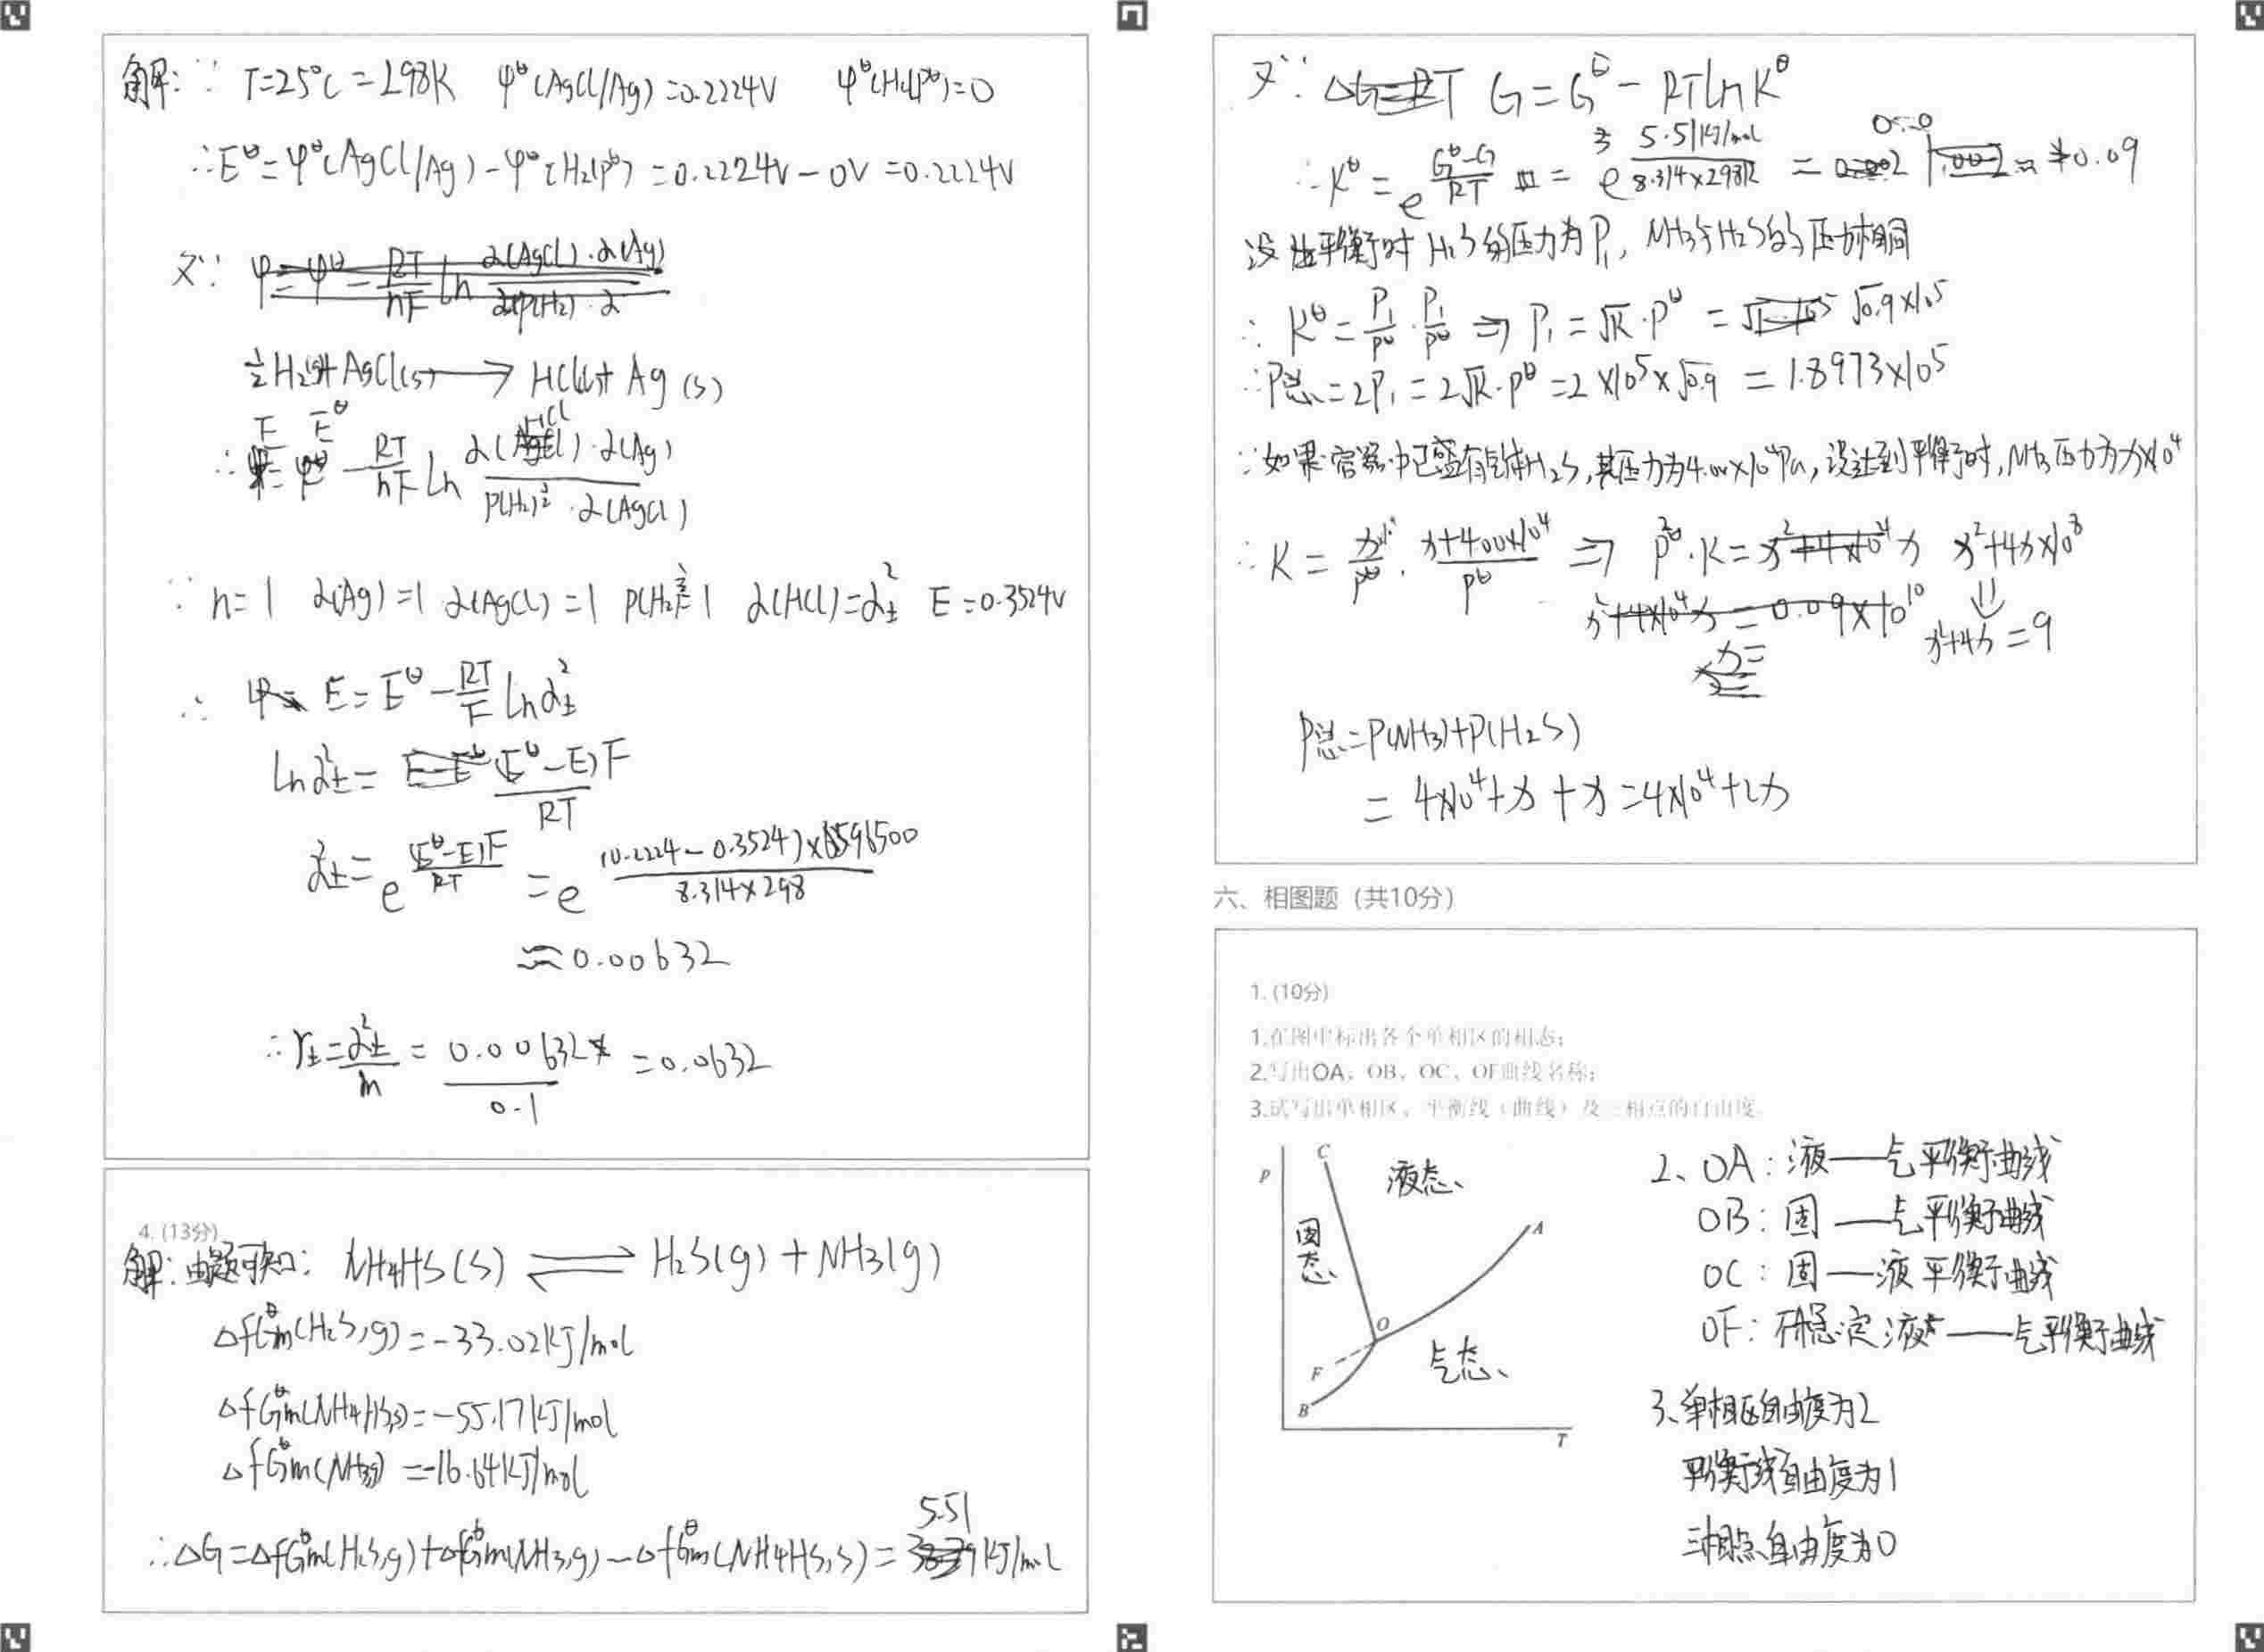 解: ∵ T=25°C=298K φ^θ(AgCl/Ag)=0.2224V φ^θ(H₂(p^θ))=0
∴E^θ=φ^θ(AgCl/Ag)-φ^θ(H₂(p^θ))=0.2224V-0V=0.2224V
又∵
½H₂(g)+AgCl(s)⟶HCl(l)+Ag(s)
∴E=E^θ-RT/nF ln a(HCl)·a(Ag)/p(H₂)^½·a(AgCl)
∵ n=1 a(Ag)=1 a(AgCl)=1 p(H₂)^½=1 a(HCl)=a±² E=0.3524V
∴ E=E^θ-RT/F lna±²
lna±²=(E^θ-E)F/RT
a±²=e^(E^θ-E)F/RT=e^(0.2224-0.3524)×96500/8.314×298
≈0.00632
∴γ±=a±²/m=0.00632/0.1=0.0632
4. (13分)
解:由题可知: NH₄HS(s)⇌H₂S(g)+NH₃(g)
△fGm^θ(H₂S,g)=-33.02kJ/mol
△fGm^θ(NH₄HS,s)=-55.17kJ/mol
△fGm^θ(NH₃,g)=-16.64kJ/mol
∴△G=△fGm^θ(H₂S,g)+△fGm^θ(NH₃,g)-△fGm^θ(NH₄HS,s)=5.51kJ/mol
又∵ G=G^θ-RTlnK^θ
∴K^θ=e^G^θ-G/RT=e^5.51kJ/mol/8.314×298K=0.09
设达平衡时H₂S分压力为P₁, NH₃与H₂S的压力相同
∴K^θ=P₁/P^θ·P₁/P^θ⇒P₁=√K·P^θ=√0.9×10⁵
∴P总=2P₁=2√K·P^θ=2×10⁵×√0.9=1.8973×10⁵
∵如果容器中已盛有气体H₂S,其压力为4.00×10⁴Pa,设达到平衡时,NH₃压力为x×10⁴
∴K=x×10⁴/P^θ·x+4.00×10⁴/P^θ⇒P^θ²·K= x²+4x×10⁸
⇓
x²+4x=9
P总=P(NH₃)+P(H₂S)
=4×10⁴+x+x=4×10⁴+2x
六、相图题(共10分)
1. (10分)
1.在图中标出各个单相区的相态;
2.写出OA、OB、OC、OF曲线名称;
3.试写出单相区、平衡线(曲线)及三相点的自由度.
P
C
液态、
固态、
A
O
F
气态、
B
T
2、OA:液——气平衡曲线
OB:固——气平衡曲线
OC:固——液平衡曲线
OF:不稳定液——气平衡曲线
3、单相区自由度为2
平衡线自由度为1
三相点自由度为0